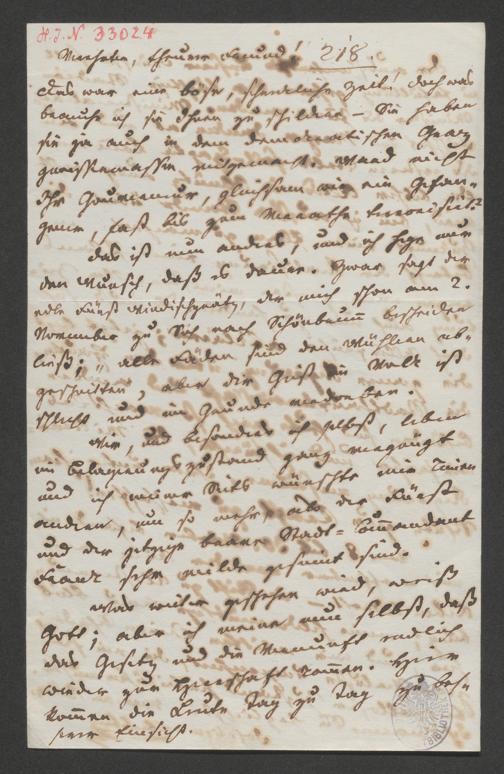 H.I.N. 33024
218
Verehrter, theurer Freund!
Das war eine böse, schreckliche Zeit! Doch was
brauche ich sie Ihnen zu schildern – Sie haben
sie ja auch in dem demokratischen Graz
gewissermassen mitgemacht. Ward nicht
Ihr Gouverneur, gleichsam wie ein Gefan-
gener, fast bis zum terrorisirt?
Das ist nun anders, und ich hege nur
den Wunsch, daß es daure. Zwar sagt der
edle Fürst Windischgrätz, der mich schon am 2.
November zu sich nach Schönbrunn bescheiden
ließ: „alle Fäden sind den Wühlern ab-
geschnitten", aber der Geist der Welt ist
schlecht und im Grunde
Wir, und besonders ich selbst, leben
im Belagerungszustand ganz vergnügt
und ich meiner Seits wünschte mir keinen
andren, um so mehr, als der Fürst
und der jetzige brave Stadt-Commandant
Frank sehr milde gesinnt sind.
Was weiter geschehen wird, weiß
Gott; aber ich meine nun selbst, daß
das Gesetz und die Vernunft endlich
wieder zur Herrschaft kommen. Hier
kommen die Leute Tag zu Tag zu bes-
serer Einsicht.